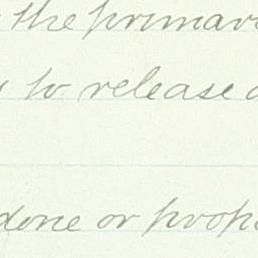 the primar
to release
done or prop